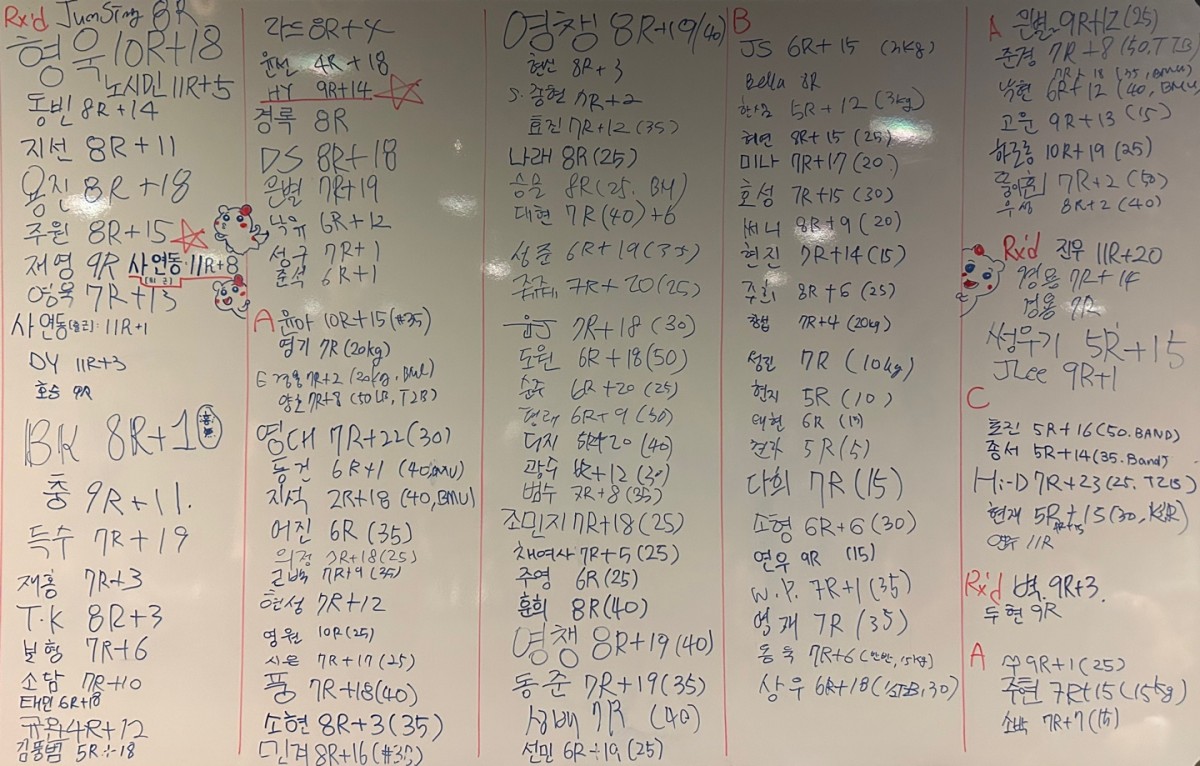 Rx'd JunSung 8R
형욱 10R+18
노시민 11R+5
동빈 8R+14
지선 8R+11
용진 8R+18
주원 8R+15
재영 9R 사연동 11R+8
영욱 7R+13
사연동 11R+1
DY 11R+3
호승 9R
BK 8R+10
충 9R+11.
득수 7R+19
재홍 7R+3
T.K 8R+3
보형 7R+6
소담 7R+10
태민 6R+18
규원 4R+12
김풍범 5R+18
라드 8R+4
윤선 4R+18
HY 9R+14
경록 8R
DS 8R+18
은별 7R+19
낙유 6R+12
성구 7R+1
준석 6R+1
A 윤아 10R+15(#35)
영기 7R(20kg)
E 경용 7R+2(20kg, BMU)
양호 7R+8(50LB, T2B)
영대 7R+22(30)
동건 6R+1 (40,BMU)
지석 2R+18 (40,BMU)
어진 6R (35)
의정 7R+18(25)
근백 7R+9(35)
현성 7R+12
영원 10R(25)
시은 7R+17(25)
풍 7R+18(40)
소현 8R+3(35)
민겸 8R+16(#35)
영챙 8R+19/40)
현선 8R+3
S. 중현 7R+2
효진 7R+12(35)
나래 8R(25)
승술 8R(25. BM)
대현 7R(40)+6
성준 6R+19(35)
7R+20(25)
7R+18(30)
도원 6R+18(50)
순주 6R+20(25)
평래 6R+9(30)
더지 20(40)
광수 +12(30)
범수 7R+8(35)
조민지 7R+18(25)
채여사 7R+5(25)
주영 6R(25)
훈희 8R(40)
영챙 8R+19(40)
동준 7R+19(35)
성배 7R (40)
선민 6R+19(25)
B
JS 6R+15 (3kg)
Bella 8R
한솔 5R+12(3kg)
혜연 8R+15(25)
미나 7R+17(20)
효성 7R+15(30)
써니 8R+9(20)
현진 7R+14(15)
주희 8R+6(25)
햅 7R+4(20kg)
성진 7R (10kg)
현지 5R (10)
태현 6R (10)
견자 5R(5)
다희 7R(15)
소형 6R+6(30)
연우 9R (15)
W.P. 7R+1(35)
역개 7R(35)
동욱 7R+6(맨맨, 15kg)
상우 6R+18(STB,30)
A 은별 9R+12(25)
준경 7R+8(50,T2B)
7R+18(35,BMU)
낙현 6R+12(40,BMU)
고운 9R+13(15)
하르동 10R+19(25)
7R+2(50)
우성 8R+2(40)
Rx'd 진우 11R+20
경용 7R+14
경용 7R
썽우기 5R+15
JLee 9R+1
C
효진 5R+16(50.BAND)
종서 5R+14(35.Band)
Hi-D 7R+23(25.T2B)
현재 5R+15(30,K2R)
연수 11R
Rx'd 벽. 9R+3.
두현 9R
A 쑤 9R+1(25)
주현 7R+15(15kg)
소박 7R+7(15)